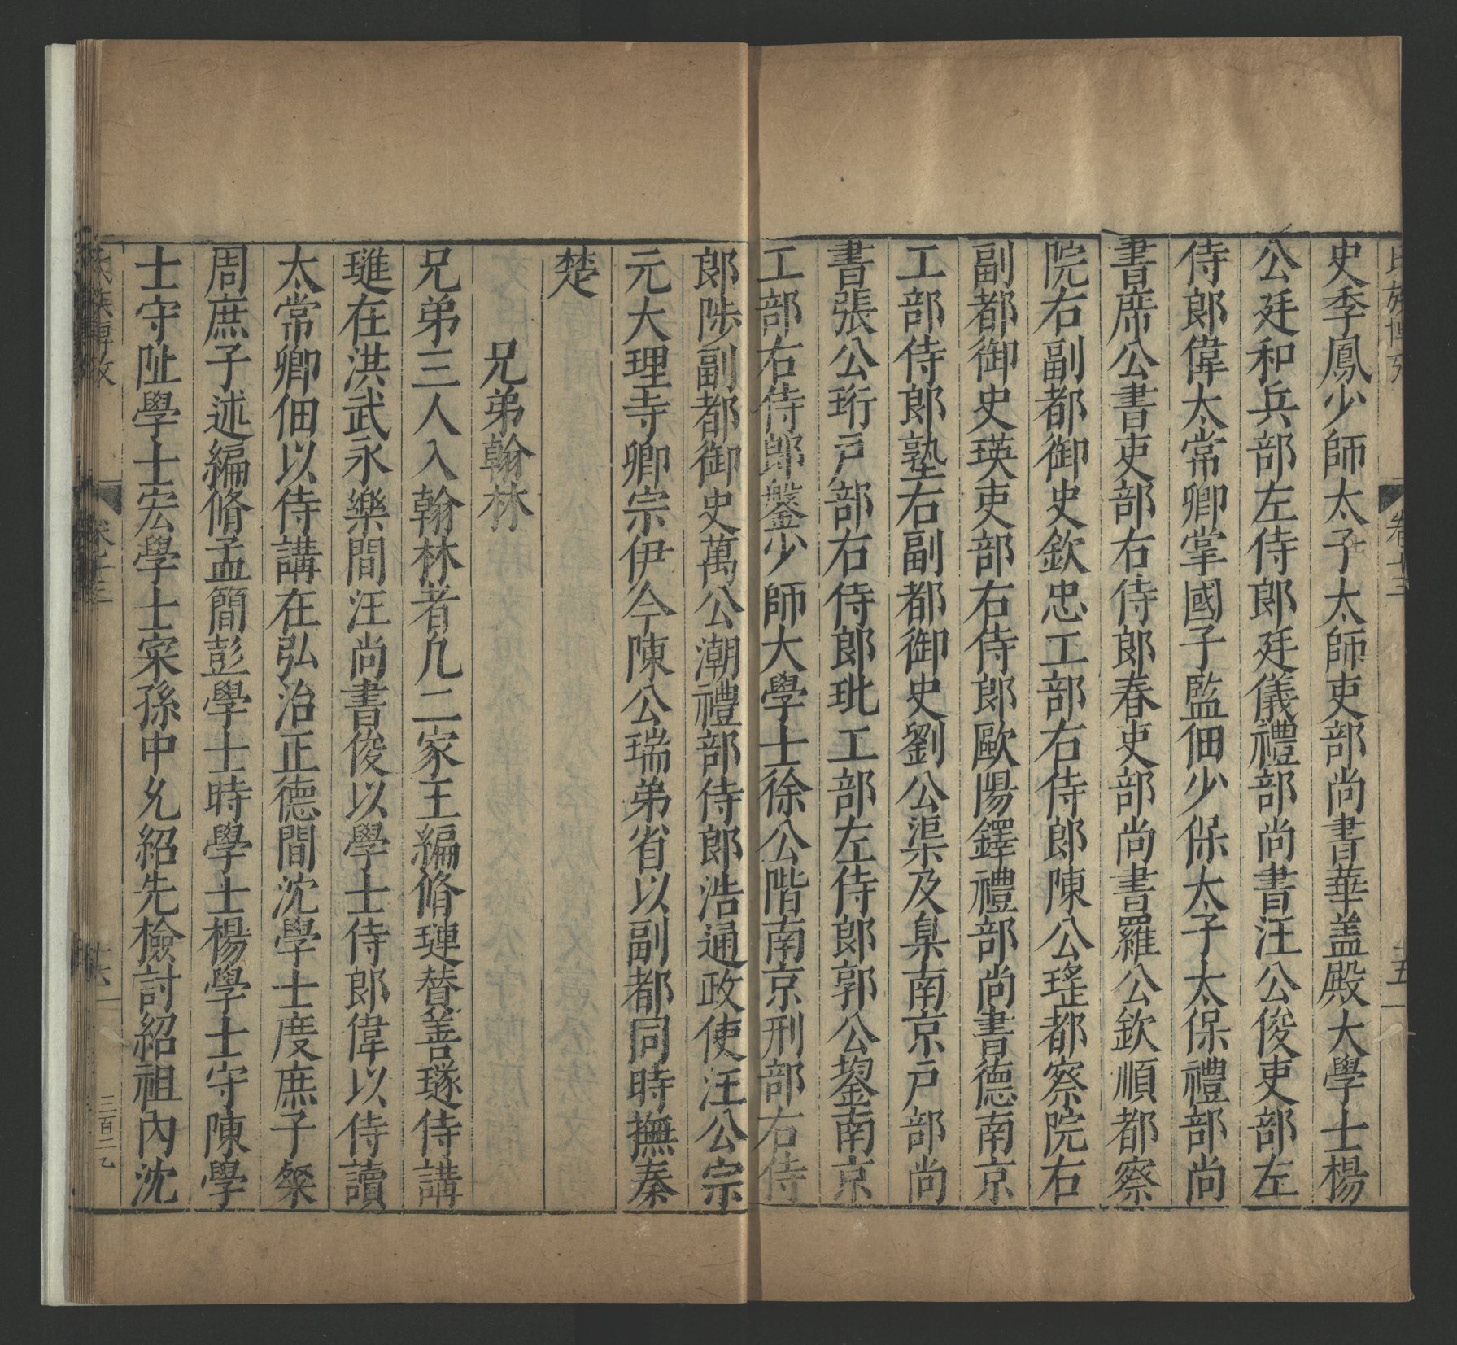 氏族博攷
卷十三
十五
史季鳳少師太子太師吏部尚書華盖殿大學士楊
公廷和兵部左侍郎廷儀禮部尚書汪公俊吏部左
侍郎偉太常卿掌國子監佃少保太子太保禮部尚
書席公書吏部右侍郎春吏部尚書羅公欽順都察
院右副都御史欽忠工部右侍郎陳公瑤都察院右
副都御史瑛吏部右侍郎歐陽鐸禮部尚書德南京
工部侍郎塾右副都御史劉公渠及臬南京戸部尚
書張公珩戸部右侍郎玭工部左侍郎郭公鋆南京
工部右侍郎鑿少師大學士徐公階南京刑部右侍
郎陟副都御史萬公潮禮部侍郎浩通政使汪公宗
元大理寺卿宗伊今陳公瑞弟省以副都同時撫秦
楚
兄弟翰林
兄弟三人入翰林者凢二家王編脩璉替善璲侍講
璡在洪武永樂間汪尚書俊以學士侍郎偉以侍讀
太常卿佃以侍講在弘治正德間沈學士度庶子粲
周庶子述編脩孟簡彭學士時學士楊學士守陳學
士守阯學士宏學士寀孫中允紹先檢討紹祖內沈
氏族博攷
卷十三
十六
三百二九